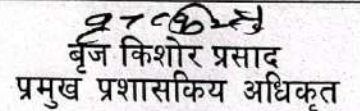 बृज किशोर प्रसाद
प्रमुख प्रशासकिय अधिकृत